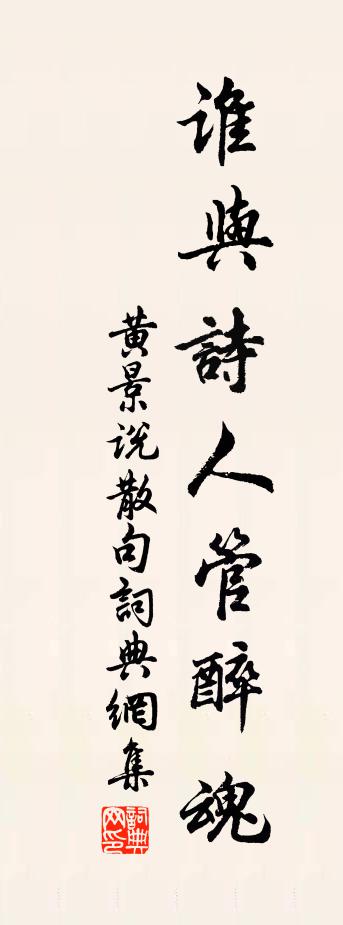 誰與詩人管醉魂
黃景说散句詞典網集
詞典网印